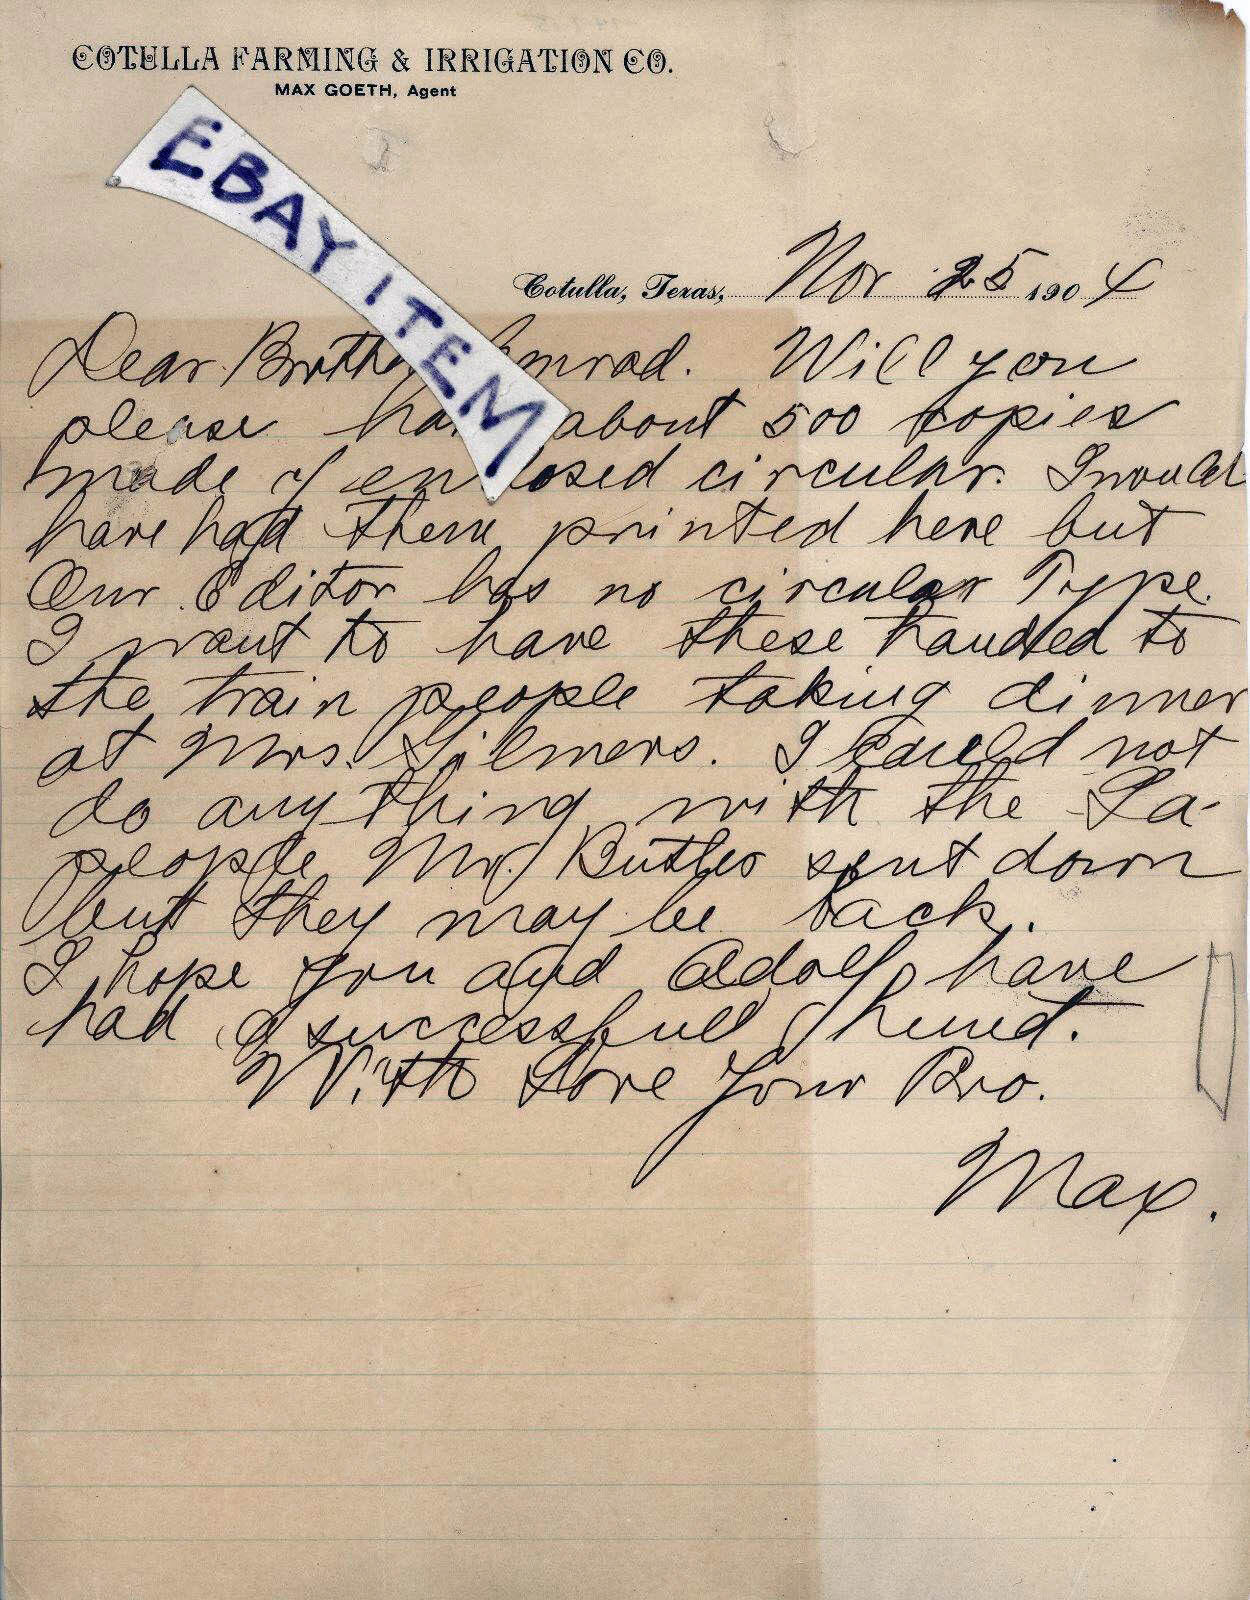 COTULLA FARMING & IRRIGATION CO.
MAX GOETH, Agent
EBAY ITEM
Cotulla, Texas, Nov 25 1904
Dear Brother Conrad. Will you
please have about 500 copies
made of enclosed circular. I would
have had them printed here but
Our Editor has no circular Type.
I want to have these handed to
the train people taking dinner
at Mrs. Gilmers. I could not
do anything with the Ia-
people Mr. Butler sent down
but they may be back.
I hope you and Adolf have
had a successfull hund.
With Love Your Bro.
Max.